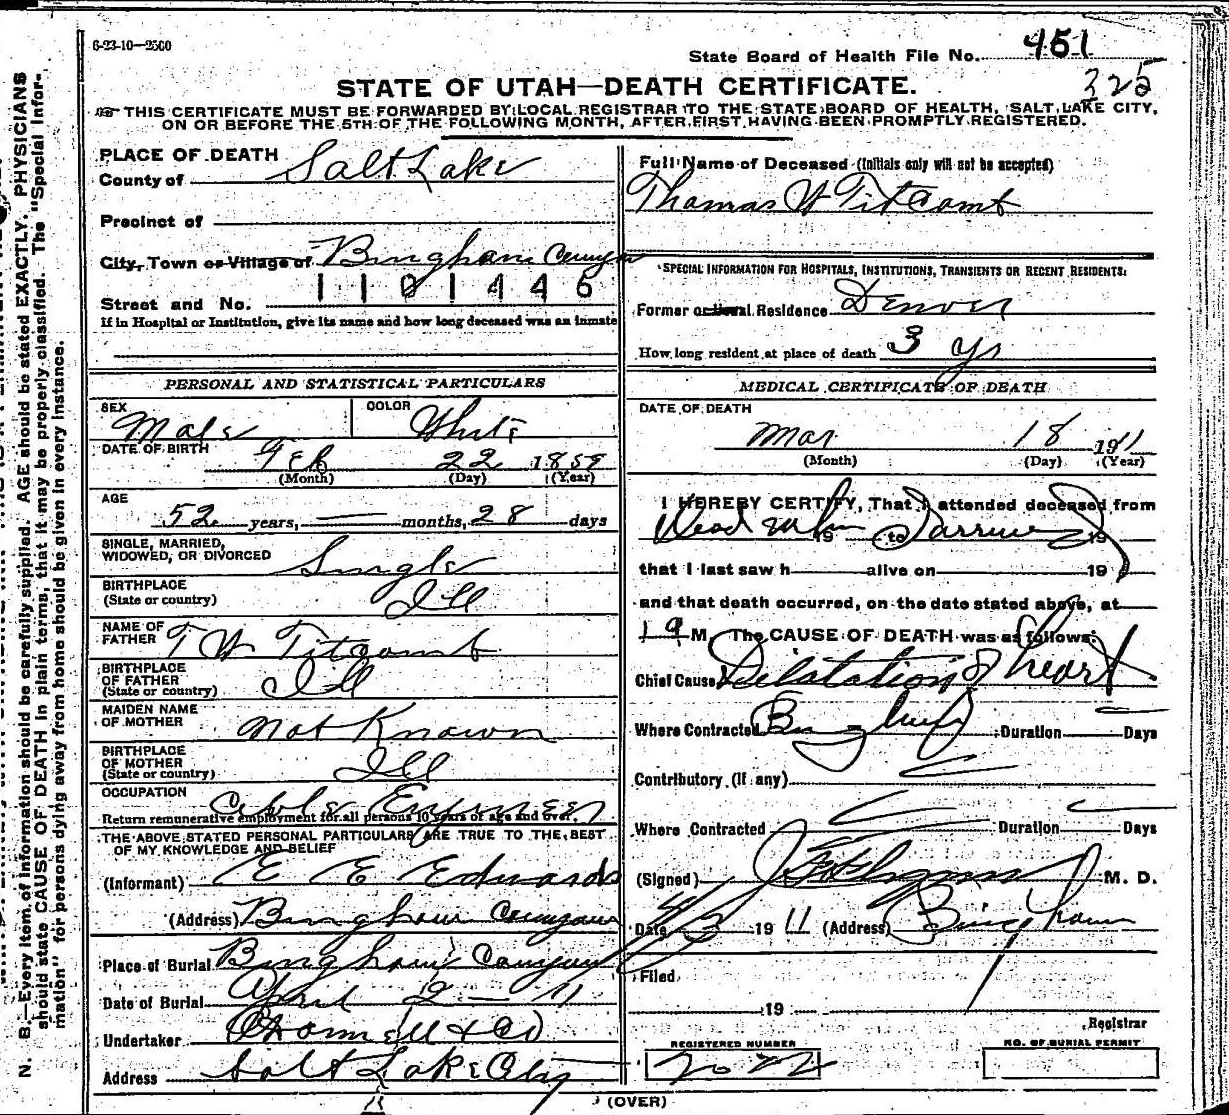 6-23-10—2500
State Board of Health File No. 451
325
STATE OF UTAH—DEATH CERTIFICATE.
THIS CERTIFICATE MUST BE FORWARDED BY LOCAL REGISTRAR TO THE STATE BOARD OF HEALTH, SALT LAKE CITY,
ON OR BEFORE THE 5TH OF THE FOLLOWING MONTH, AFTER FIRST HAVING BEEN PROMPTLY REGISTERED.
PLACE OF DEATH
County of Salt Lake
Precinct of
City, Town or Village of Bingham Canyon
1101446
Street and No.
If in Hospital or Institution, give its name and how long deceased was an inmate
PERSONAL AND STATISTICAL PARTICULARS
SEX Male COLOR White
DATE OF BIRTH Feb 22 1859
(Month) (Day) (Year)
AGE
52 years, — months, 28 days
SINGLE, MARRIED,
WIDOWED, OR DIVORCED Single
BIRTHPLACE
(State or country) Ill
NAME OF
FATHER T W Titcomb
BIRTHPLACE
OF FATHER
(State or country) Ill
MAIDEN NAME
OF MOTHER Not Known
BIRTHPLACE
OF MOTHER
(State or country) Ill
OCCUPATION Engineer
Return remunerative employment for all persons 10 years of age and over.
THE ABOVE STATED PERSONAL PARTICULARS ARE TRUE TO THE BEST
OF MY KNOWLEDGE AND BELIEF
(Informant) E E Edwards
(Address) Bingham Canyon
Place of Burial Bingham Canyon
Date of Burial April 2 — 11
Undertaker & Co
Address Salt Lake City
Full Name of Deceased (Initials only will not be accepted)
Thomas W Titcomb
SPECIAL INFORMATION FOR HOSPITALS, INSTITUTIONS, TRANSIENTS OR RECENT RESIDENTS:
Former or usual Residence Denver
How long resident at place of death 3 ys
MEDICAL CERTIFICATE OF DEATH
DATE OF DEATH
Mar 18 1911
(Month) (Day) (Year)
I HEREBY CERTIFY, That I attended deceased from
Dead when 19 to I arrived 19
that I last saw h alive on 19
and that death occurred, on the date stated above, at
M. The CAUSE OF DEATH was as follows:
Chief Cause Dilatation of heart
Where Contracted Duration Days
Contributory (If any)
Where Contracted Duration Days
(Signed) M. D.
Date 1911 (Address) Bingham
Filed
19
Registrar
REGISTERED NUMBER
NO. OF BURIAL PERMIT
(OVER)
N. B.—Every item of information should be carefully supplied. AGE should be stated EXACTLY. PHYSICIANS
should state CAUSE OF DEATH in plain terms, that it may be properly classified. The "Special Infor-
mation" for persons dying away from home should be given in every instance.